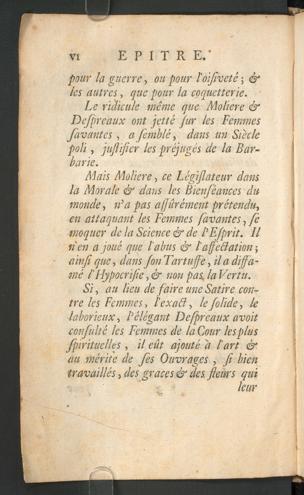 VI EPITRE.
pour la guerre, ou pour l'oisiveté; &
les autres, que pour la coquetterie.
Le ridicule même que Moliere &
Despreaux ont jetté sur les Femmes
savantes, a semblé, dans un Siècle
poli, justifier les préjugés de la Bar-
barie.
Mais Moliere, ce Législateur dans
la Morale & dans les Bienséances du
monde, n'a pas assûrément prétendu,
en attaquant les Femmes savantes, se
moquer de la Science & de l'Esprit. Il
n'en a joué que l'abus & l'affectation;
ainsi que, dans son Tartuffe, il a diffa-
mé l'Hypocrisie, & non pas la Vertu.
Si, au lieu de faire une Satire con-
tre les Femmes, l'exact, le solide, le
laborieux, l'élégant Despreaux avoit
consulté les Femmes de la Cour les plus
spirituelles, il eût ajouté à l'art &
au mérite de ses Ouvrages, si bien
travaillés, des graces & des fleurs qui
leur